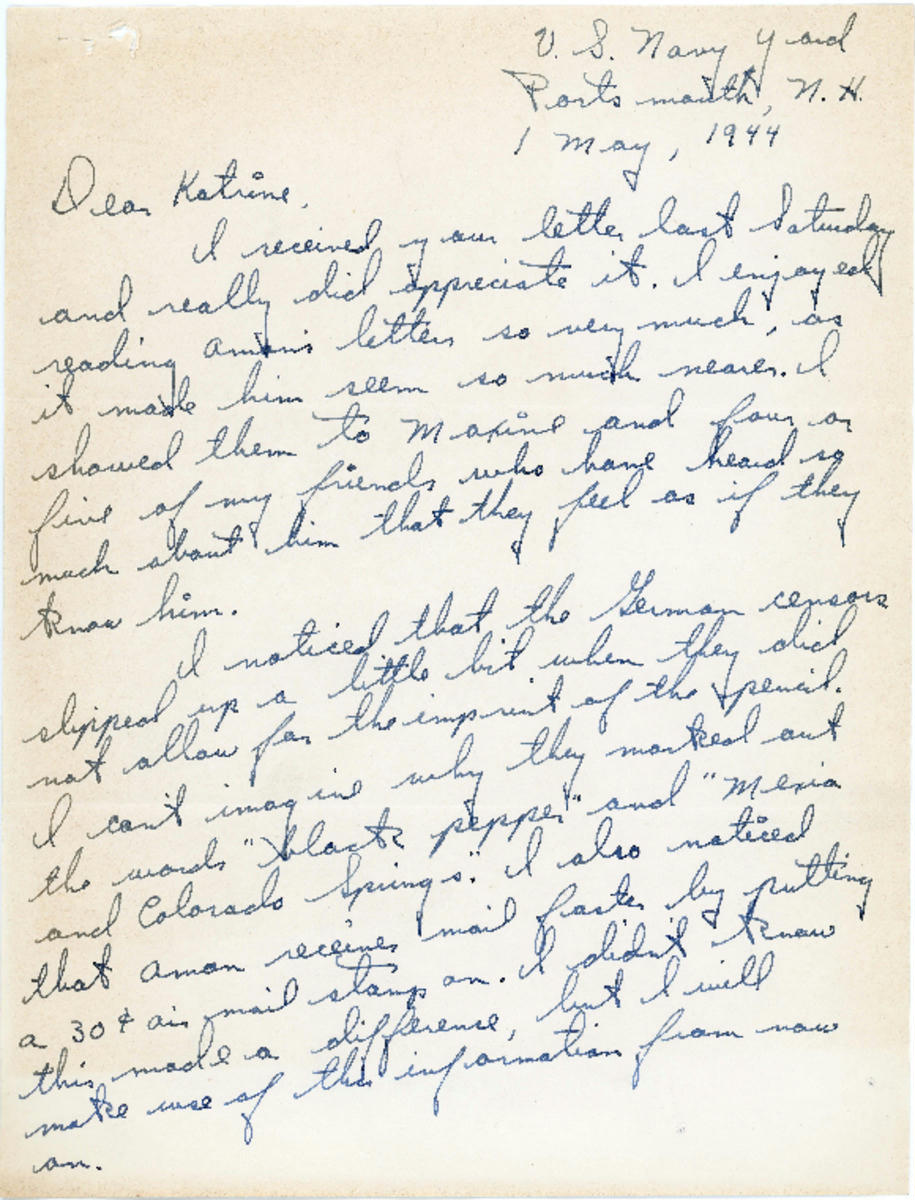 U. S. Navy Yard
Portsmouth, N. H.
1 May, 1944
Dear Katrine,
I received your letter last Saturday
and really did appreciate it. I enjoyed
reading Aman's letters so very much, as
it made him seem so much nearer. I
showed them to Maxine and four or
five of my friends who have heard so
much about him that they feel as if they
know him.
I noticed that the German censors
slipped up a little bit when they did
not allow for the imprint of the pencil.
I can't imagine why they marked out
the words "black pepper" and "Mexia
and Colorado Springs". I also noticed
that Aman receives mail faster by putting
a 30¢ air mail stamp on. I didn't know
this made a difference, but I will
make use of this information from now
on.